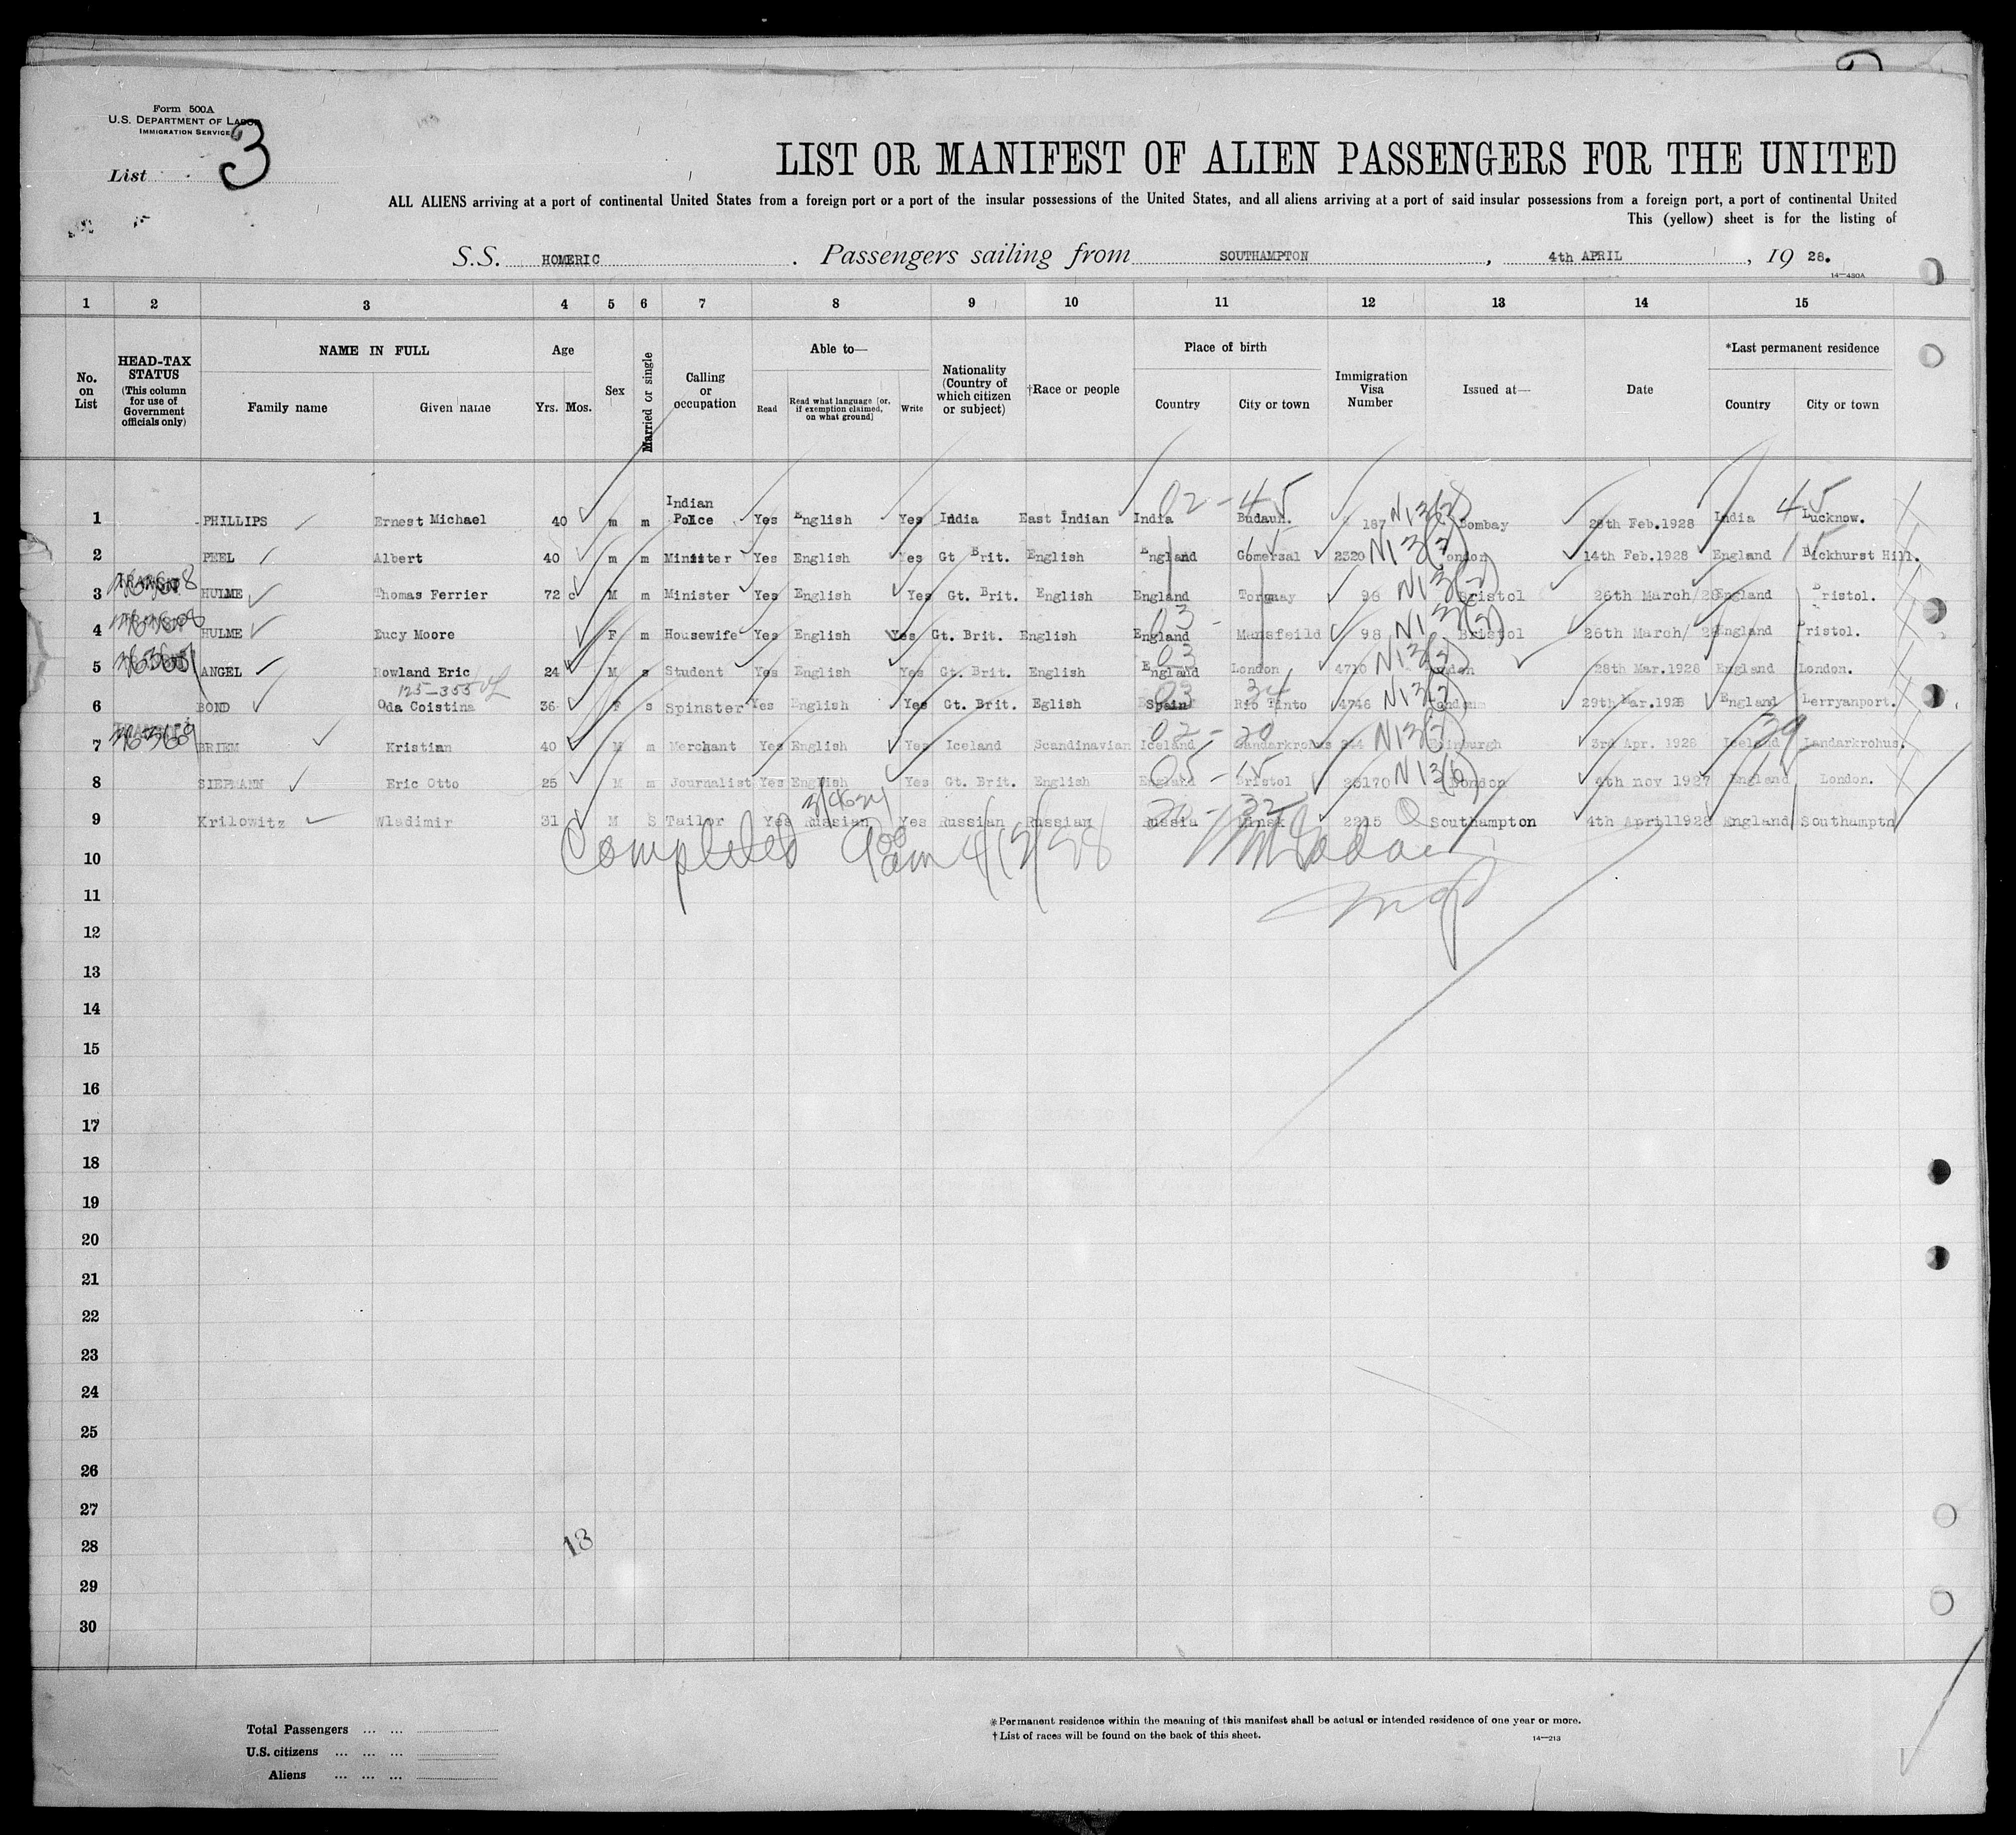 Form 500A
U.S. DEPARTMENT OF LABOR
IMMIGRATION SERVICE
List 3
LIST OR MANIFEST OF ALIEN PASSENGERS FOR THE UNITED
ALL ALIENS arriving at a port of continental United States from a foreign port or a port of the insular possessions of the United States, and all aliens arriving at a port of said insular possessions from a foreign port, a port of continental United
This (yellow) sheet is for the listing of
S.S. HOMERIC . Passengers sailing from SOUTHAMPTON , 4th APRIL , 19 28.
14—430A
1 2 3 4 5 6 7 8 9 10 11 12 13 14 15
No. on List
HEAD-TAX STATUS (This column for use of Government officials only)
NAME IN FULL
Family name Given name
Age
Yrs. Mos.
Sex
Married or single
Calling or occupation
Able to—
Read Read what language [or, if exemption claimed, on what ground] Write
Nationality (Country of which citizen or subject)
†Race or people
Place of birth
Country City or town
Immigration Visa Number
Issued at—
Date
*Last permanent residence
Country City or town
02 - 45 45
1 PHILLIPS Ernest Michael 40 m m Indian Police Yes English Yes India East Indian India Budaun. 187 N13(2) Bombay 28th Feb.1928 India Lucknow.
2 PEEL Albert 40 m m Minister Yes English Yes Gt Brit. English England Gomersal 2320 N13(2) London 14th Feb.1928 England Bickhurst Hill.
3 HULME Thomas Ferrier 72 M m Minister Yes English Yes Gt. Brit. English England Torquay 98 N13(2) Bristol 26th March/28 England Bristol.
4 HULME Lucy Moore F m Housewife Yes English Yes Gt. Brit. English England Mansfeild 98 N13(2) Bristol 26th March/ 28 England Bristol.
5 ANGEL Rowland Eric 24 M s Student Yes English Yes Gt. Brit. English England London 4710 N13(2) London 28th Mar.1928 England London.
125-355
6 BOND Oda Coistina 36 F s Spinster Yes English Yes Gt. Brit. Eglish Spain Rio Tinto 4746 N13(2) 29th Mar.1928 England Lerryanport.
7 BRIEM Kristian 40 M m Merchant Yes English Yes Iceland Scandinavian Iceland Sandarkrohus 244 N13(2) Edinburgh 3rd Apr. 1928 Iceland Landarkrohus.
8 SIEPMANN Eric Otto 25 M m Journalist Yes English Yes Gt. Brit. English England Bristol 26170 N13(6) London 4th nov 1927 England London.
9 Krilowitz Wladimir 31 M S Tailor Yes Russian Yes Russian Russian Russia Minsk 2215 Southampton 4th April1928 England Southamptn
Completed 9 am 4/12/28
10
11
12
13
14
15
16
17
18
19
20
21
22
23
24
25
26
27
28
13
29
30
Total Passengers ... ...
U.S. citizens ... ... ...
Aliens ... ... ...
*Permanent residence within the meaning of this manifest shall be actual or intended residence of one year or more.
†List of races will be found on the back of this sheet.
14—213